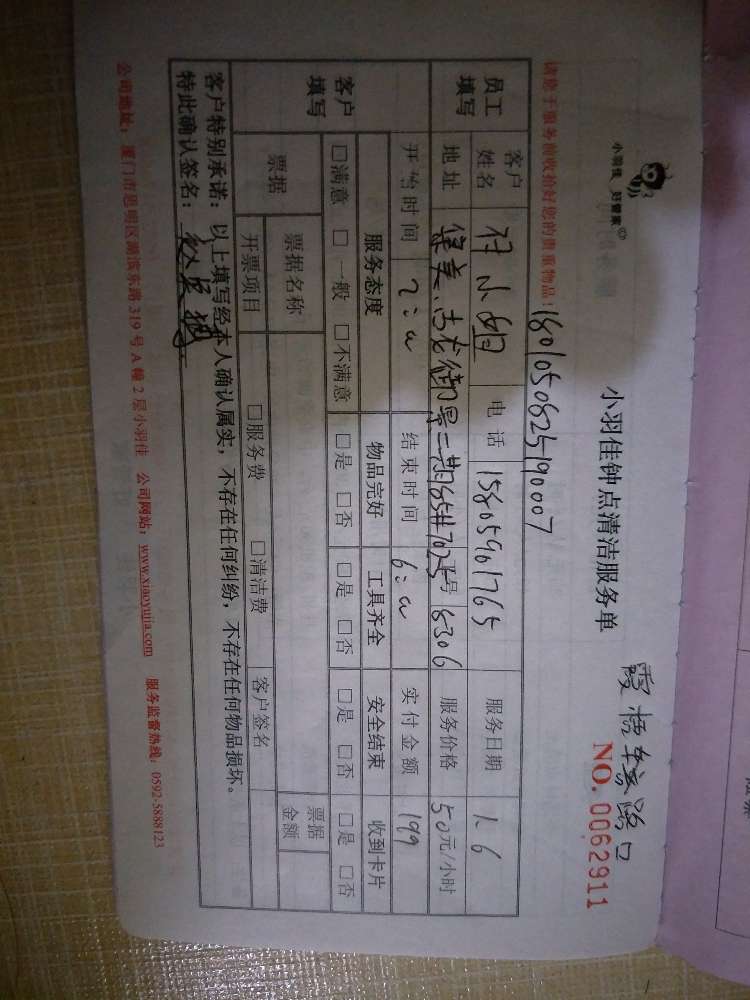 小羽佳 好管家
小羽佳钟点清洁服务单
霞梧 路口
NO. 0062911
请您于服务前收拾好您的贵重物品!
180105082519007
员工填写 客户姓名 小姐 电话 15805901765 服务日期 1.6
地址 保美 古龙御景二期 员工号 8306 服务价格 50元/小时
开始时间 结束时间 实付金额 199
客户填写 服务态度 物品完好 工具齐全 安全结束 收到卡片
□满意 □一般 □不满意 □是 □否 □是 □否 □是 □否 □是 □否
票据 票据名称 票据金额
开票项目 □服务费 □清洁费 客户签名
客户特别承诺:以上填写经本人确认属实,不存在任何纠纷,不存在任何物品损坏。
特此确认签名:
公司地址:厦门市思明区湖滨东路319号A幢2层小羽佳 公司网站:www.xiaoyujia.com 服务监督热线:0592-5888123